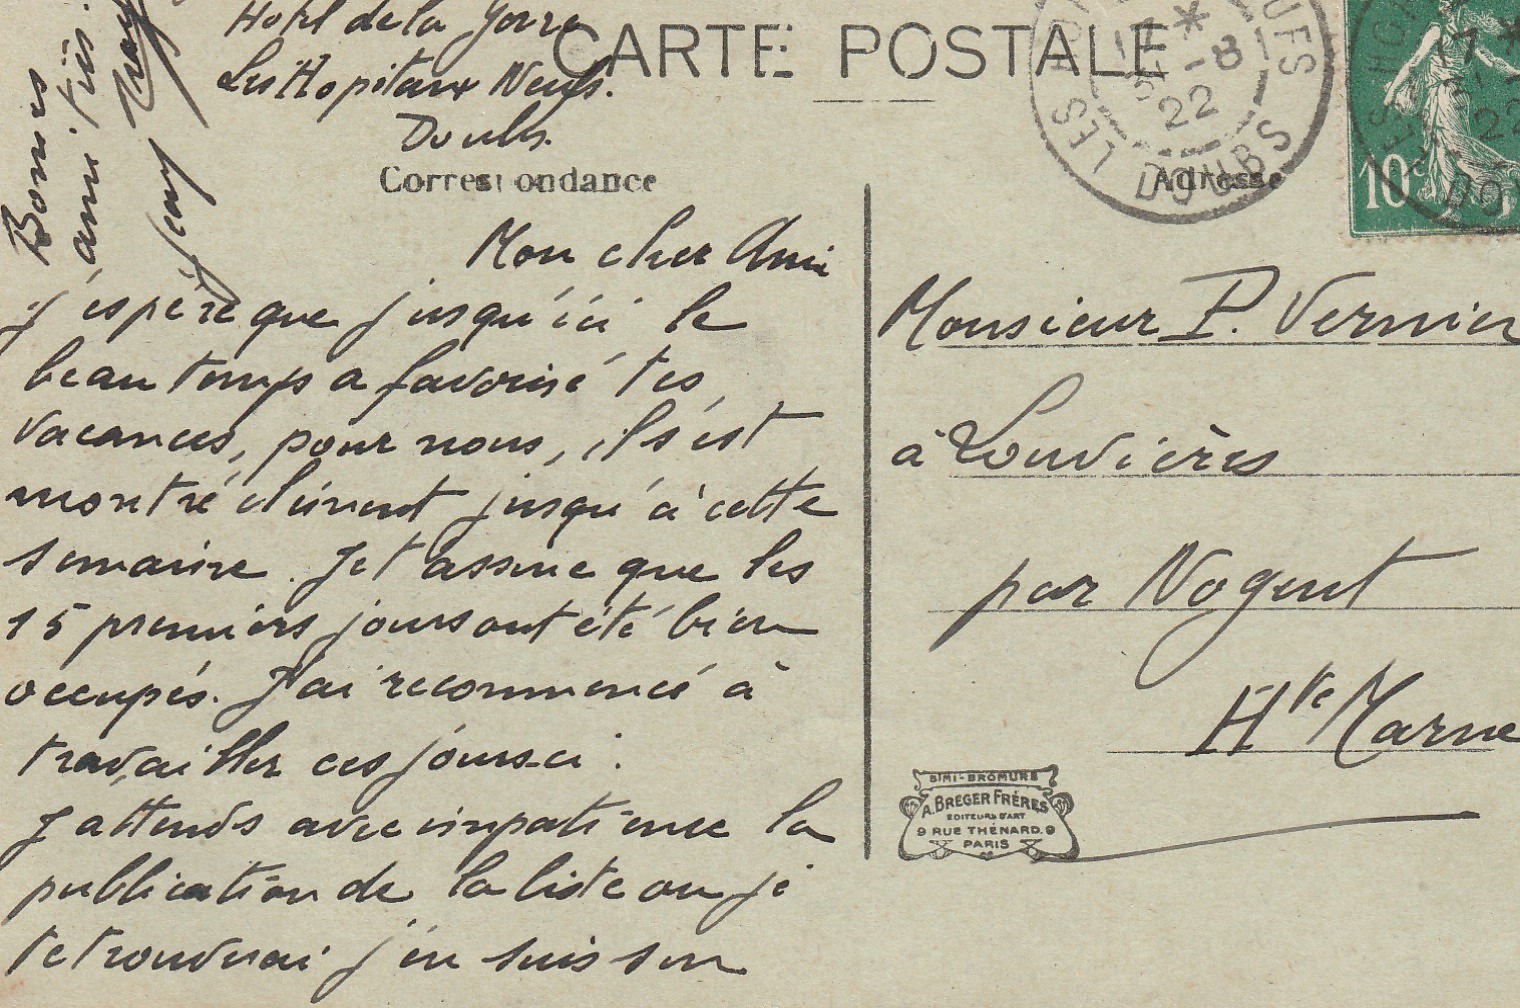 Hotel de la
Les Hopitaux Neufs.
Doubs.
CARTE POSTALE
Correspondance
Adresse
Mon cher Ami
j'espère que jusqu'ici le
beau temps a favorisé tes
vacances, pour nous, il s'est
montré clément jusqu'à cette
semaine. Je t'assure que les
15 premiers jours ont été bien
occupés. J'ai recommencé à
travailler ces jours-ci.
J'attends avec impatience la
publication de la liste ou je
te trouverai j'en suis sur
Bonnes
amitiés.
Jean
Monsieur P. Vernier
à Louvières
par Nogent
Hte Marne
17 *
-8
22
LES HOP
UFS
DOUBS
10
17 *
22
SIMI-BROMURE
A. BREGER FRÈRES
EDITEURS D'ART
9 RUE THÉNARD. 9
PARIS